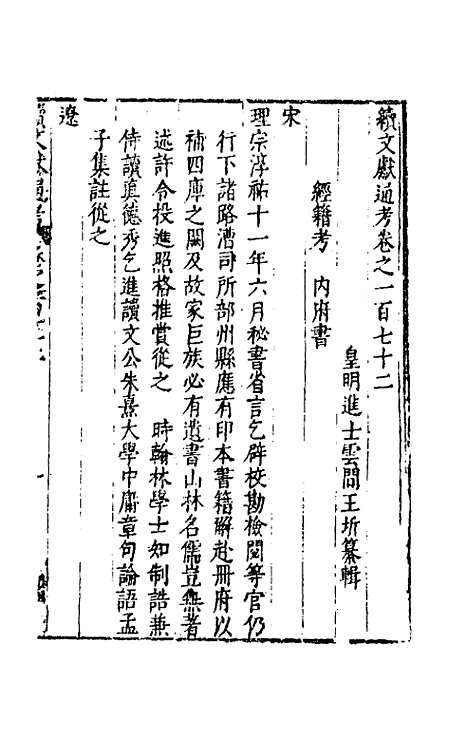 續文獻通考卷之一百七十二
皇明進士雲間王圻纂輯
經籍考　內府書
宋
理宗淳祐十一年六月秘書省言乞辟校勘檢閱等官仍
行下諸路漕司所部州縣應有印本書籍解赴冊府以
補四庫之闕及故家巨族必有遺書山林名儒豈無著
述許令投進照格推賞從之　時翰林學士知制誥兼
侍讀真德秀乞進讀文公朱熹大學中庸章句論語孟
子集註從之
遼